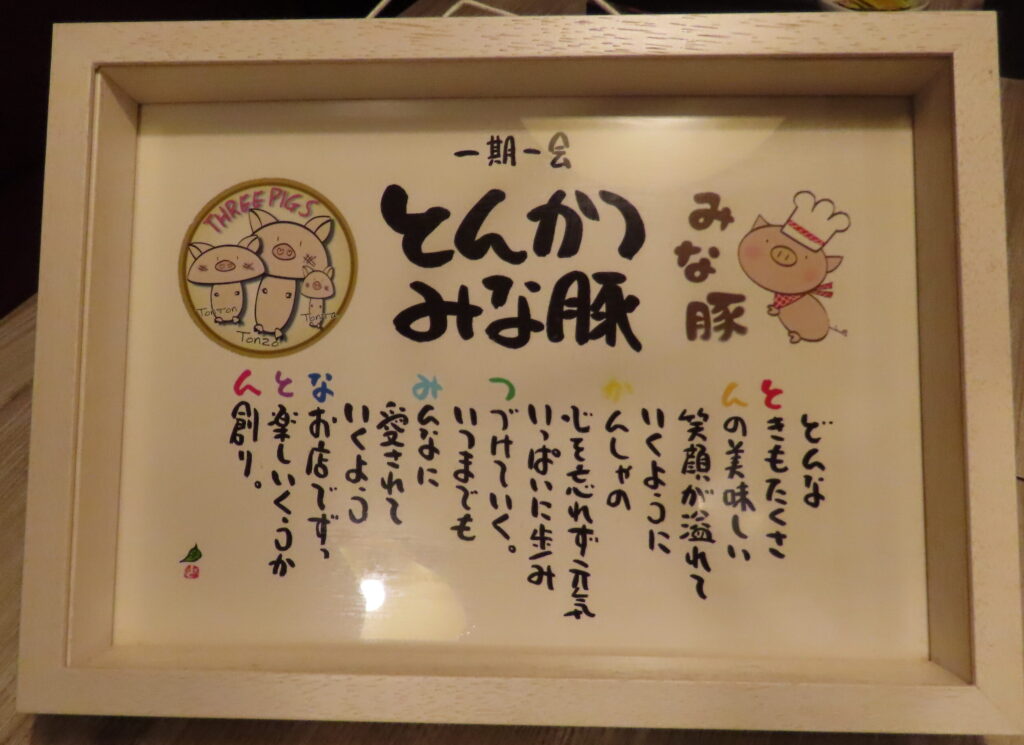 一期一会
THREE PIGS
TonTon
Tonzo
とんかつ
みな豚
みな豚
どんな
ときもたくさ
んの美味しい
笑顔が溢れて
いくように
かんしゃの
心を忘れず元気
いっぱいに歩み
つづけていく。
いつまでも
みんなに
愛されて
いくよう
なお店でずっ
と楽しいくうか
ん創り。